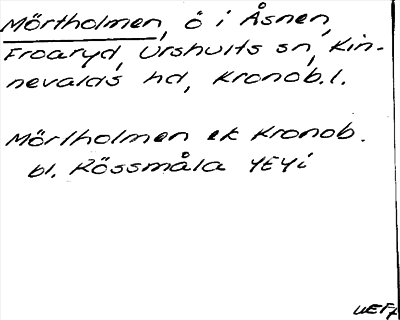 Mörtholmen, ö i Åsnen,
Froaryd, Urshults sn, Kin-
nevalds hd, Kronob. l.
Mörlholmen ek Kronob.
bl. Kössmåla YEYi